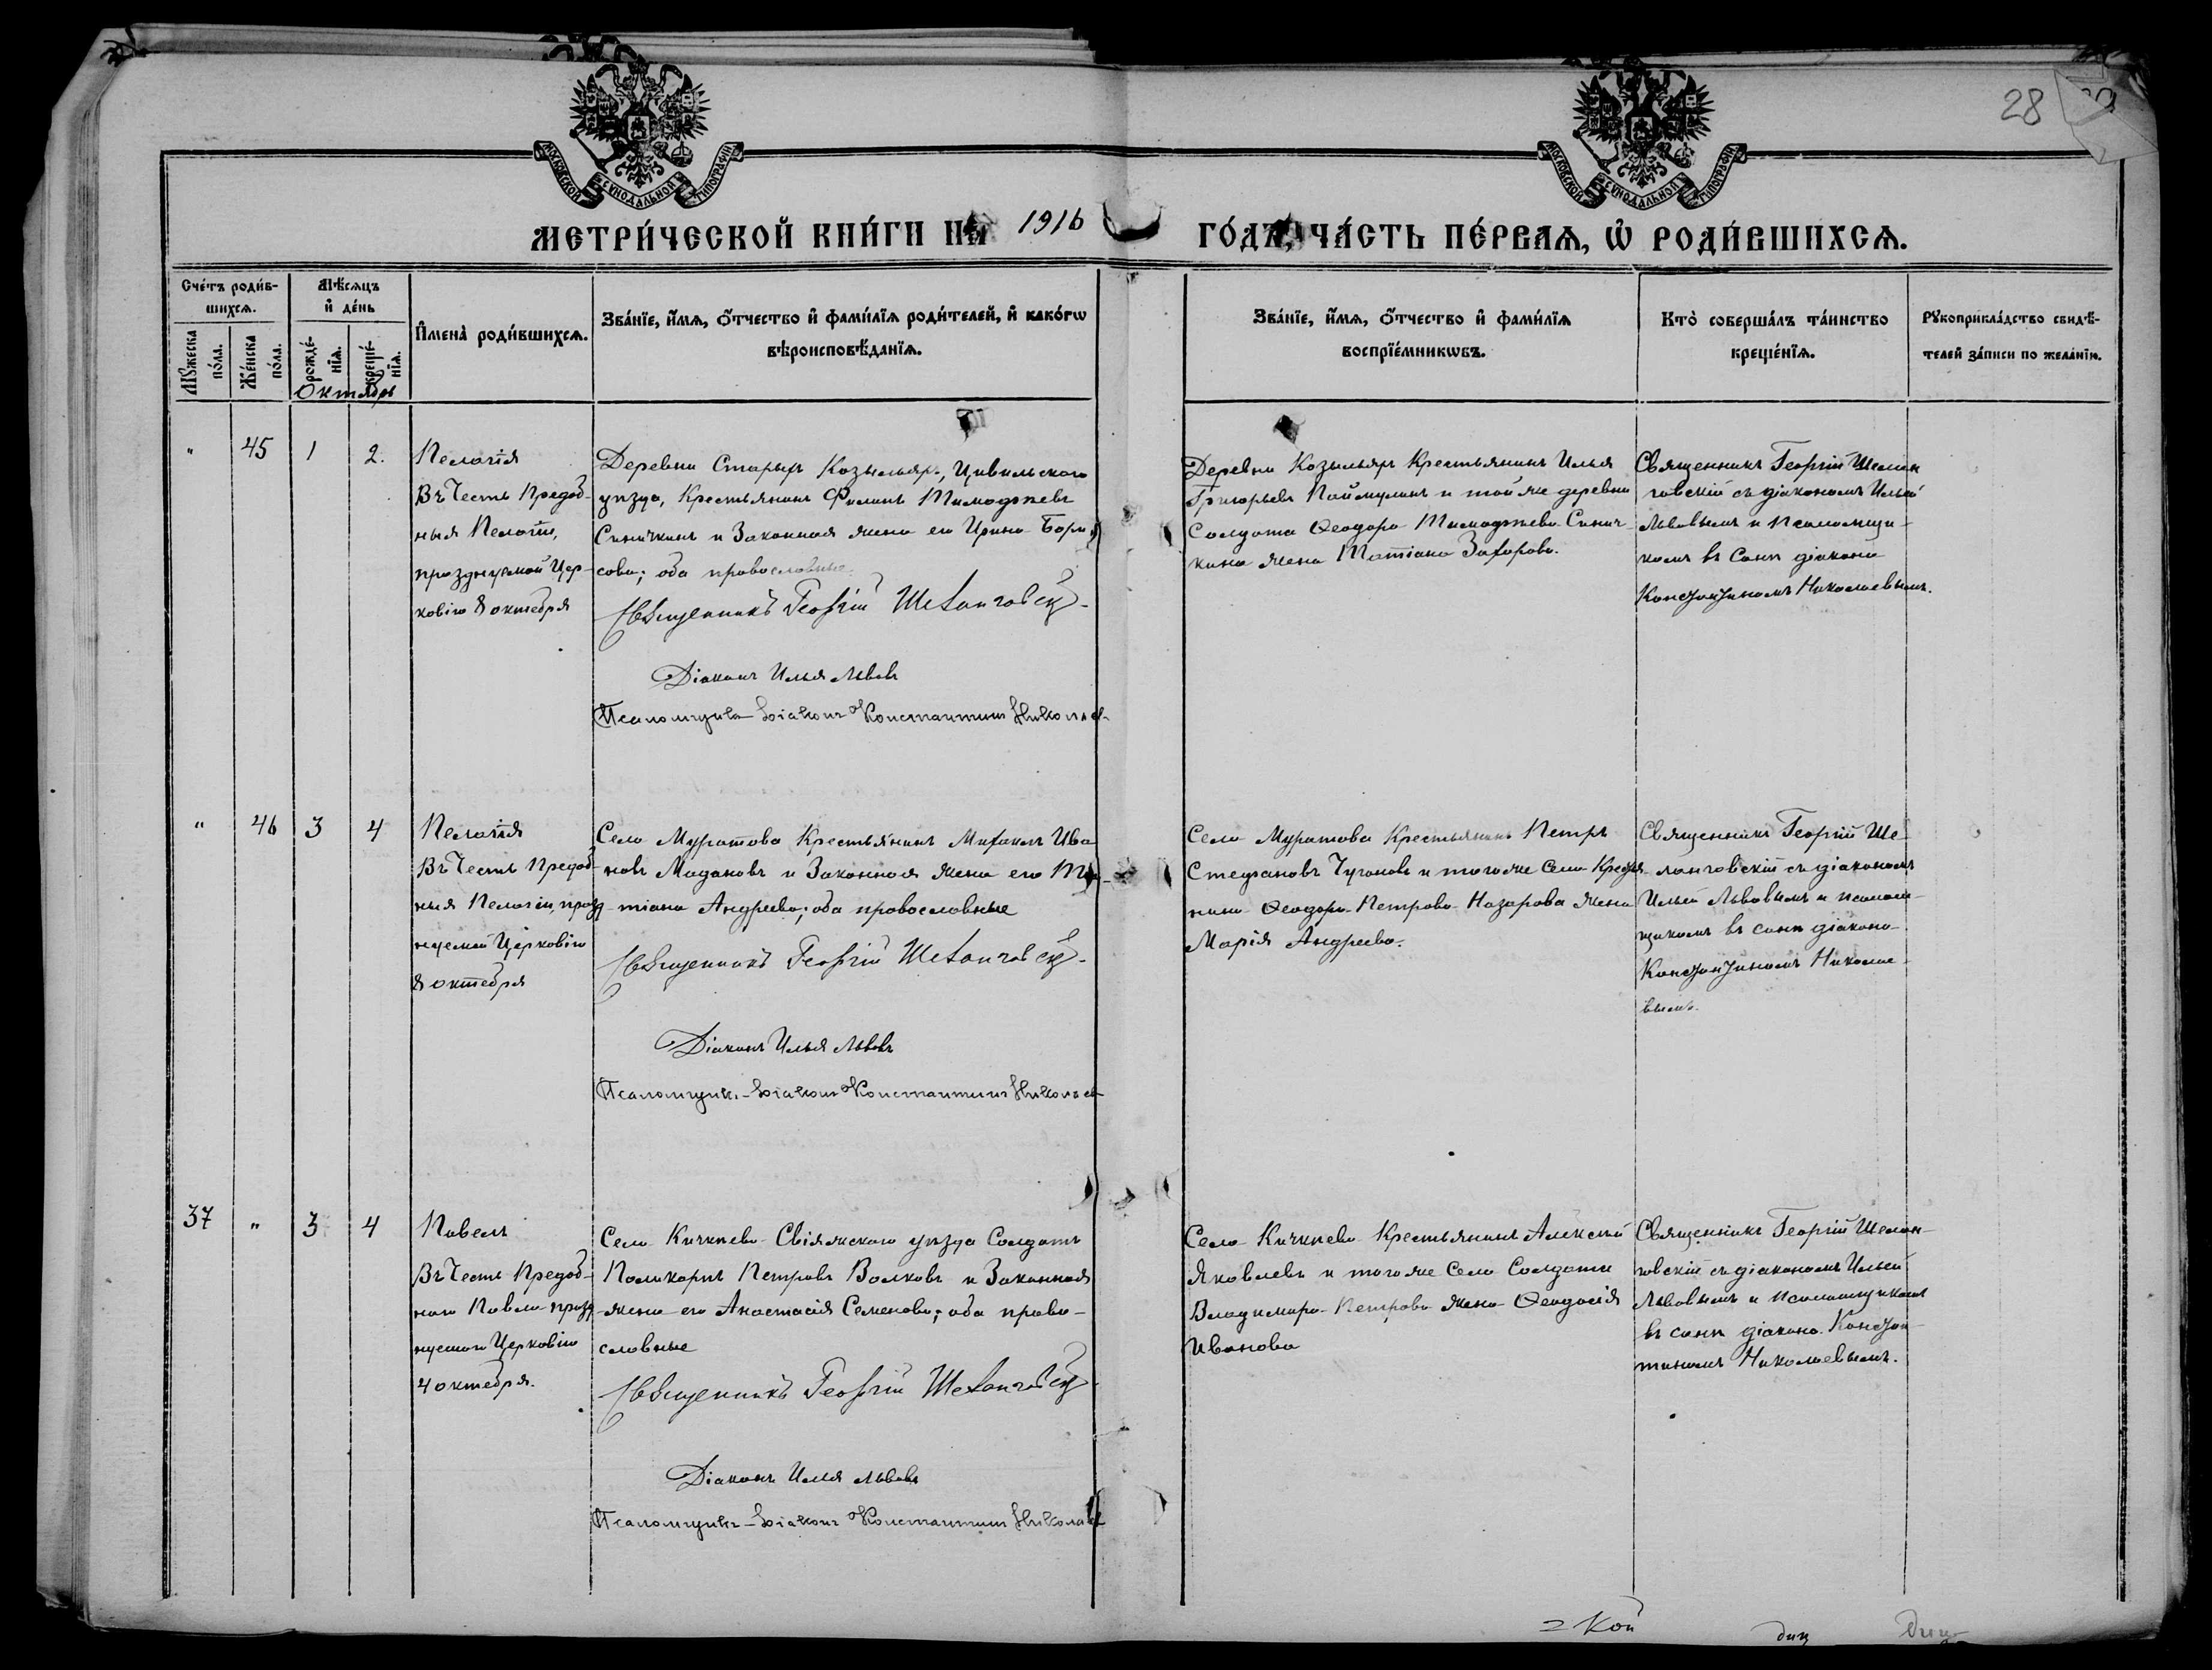 28
МОСКОВСКОЙ СѴНОДАЛЬНОЙ ТИПОГРАФІИ
МОСКОВСКОЙ СѴНОДАЛЬНОЙ ТИПОГРАФІИ
МЕТРИ́ЧЕСКОЙ КНИ́ГИ НА 1916 ГО́ДА, ЧА́СТЬ ПЕ́РВАѦ, Ѡ҆ РОДИ́ВШИХСѦ.
Сче́тъ роди́в-
шихсѧ.
Мѣ́сѧцъ
и҆ де́нь
Мꙋ́жеска по́ла.
Же́нска по́ла.
рожде́-нїѧ.
креще́-нїѧ.
И҆мена̀ роди́вшихсѧ.
Зва́нїе, и҆́мѧ, ѻ҆́тчество и҆ фами́лїѧ роди́телей, и҆ како́гѡ
вѣроисповѣ́данїѧ.
Зва́нїе, и҆́мѧ, ѻ҆́тчество и҆ фами́лїѧ
воспрїе́мникѡвъ.
Кто̀ соверша́лъ та́инство
креще́нїѧ.
Рꙋкоприкла́дство свидѣ́-
телей за́писи по жела́нїю.
Октябрь
" 45 1 2.
Пелагія
Въ Честь Преподоб-
ныя Пелагіи,
празднуемой Цер-
ковію 8 октября
Деревни Старыя Козыльяры, Цивильского
уѣзда, Крестьянинъ Филипъ Тимофѣевъ
Синичкинъ и Законная жена его Ирина Бори-
сова; оба православные.
Священникъ Георгій Шеланговскій
Діаконъ Илья Львовъ
Псаломщикъ-діаконъ Константинъ Николаев
Деревни Козыльяръ Крестьянинъ Илья
Григорьевъ и той же деревни
Солдата Ѳеодора Тимофѣева Синич-
кина жена Татіана Захарова.
Священникъ Георгій Шелан
говскій съ діакономъ Ильей
Львовымъ и псаломщи-
комъ въ санѣ діакона
Константиномъ Николаевымъ.
" 46 3 4
Пелагія
Въ Честь Преподоб-
ныя Пелагіи, празд-
нуемой Церковію
8 октября
Села Муратова Крестьянинъ Михаилъ Ива-
новъ Мадановъ и Законная жена его Та-
тіана Андреева; оба православные
Священникъ Георгій Шеланговскій
Діаконъ Илья Львовъ
Псаломщикъ-діаконъ Константинъ Николаев
Села Муратова Крестьянинъ Петръ
Степановъ Чугоновъ и того же Села Крестья-
нина Ѳеодора Петрова Назарова жена
Марія Андреева.
Священникъ Георгій Ше-
ланговскій съ діакономъ
Ильей Львовымъ и псалом-
щикомъ въ санѣ діакона
Константиномъ Николае-
вымъ.
37 " 3 4
Павелъ
Въ Честь Преподоб-
наго Павла празд-
нуемаго Церковію
4 октября.
Села Кичкѣева Свіяжскаго уѣзда Солдатъ
Поликарпъ Петровъ Волковъ и Законная
жена его Анастасія Семенова; оба право-
славные
Священникъ Георгій Шеланговскій
Діаконъ Илья Львовъ
Псаломщикъ-діаконъ Константинъ Николаев
Села Кичкѣева Крестьянинъ Алексій
Яковлевъ и того же Села Солдата
Владимира Петрова жена Ѳеодосія
Иванова
Священникъ Георгій Шелан-
говскій съ діакономъ Ильей
Львовымъ и псаломщикомъ
въ санѣ діакона Констан-
тиномъ Николаевымъ.